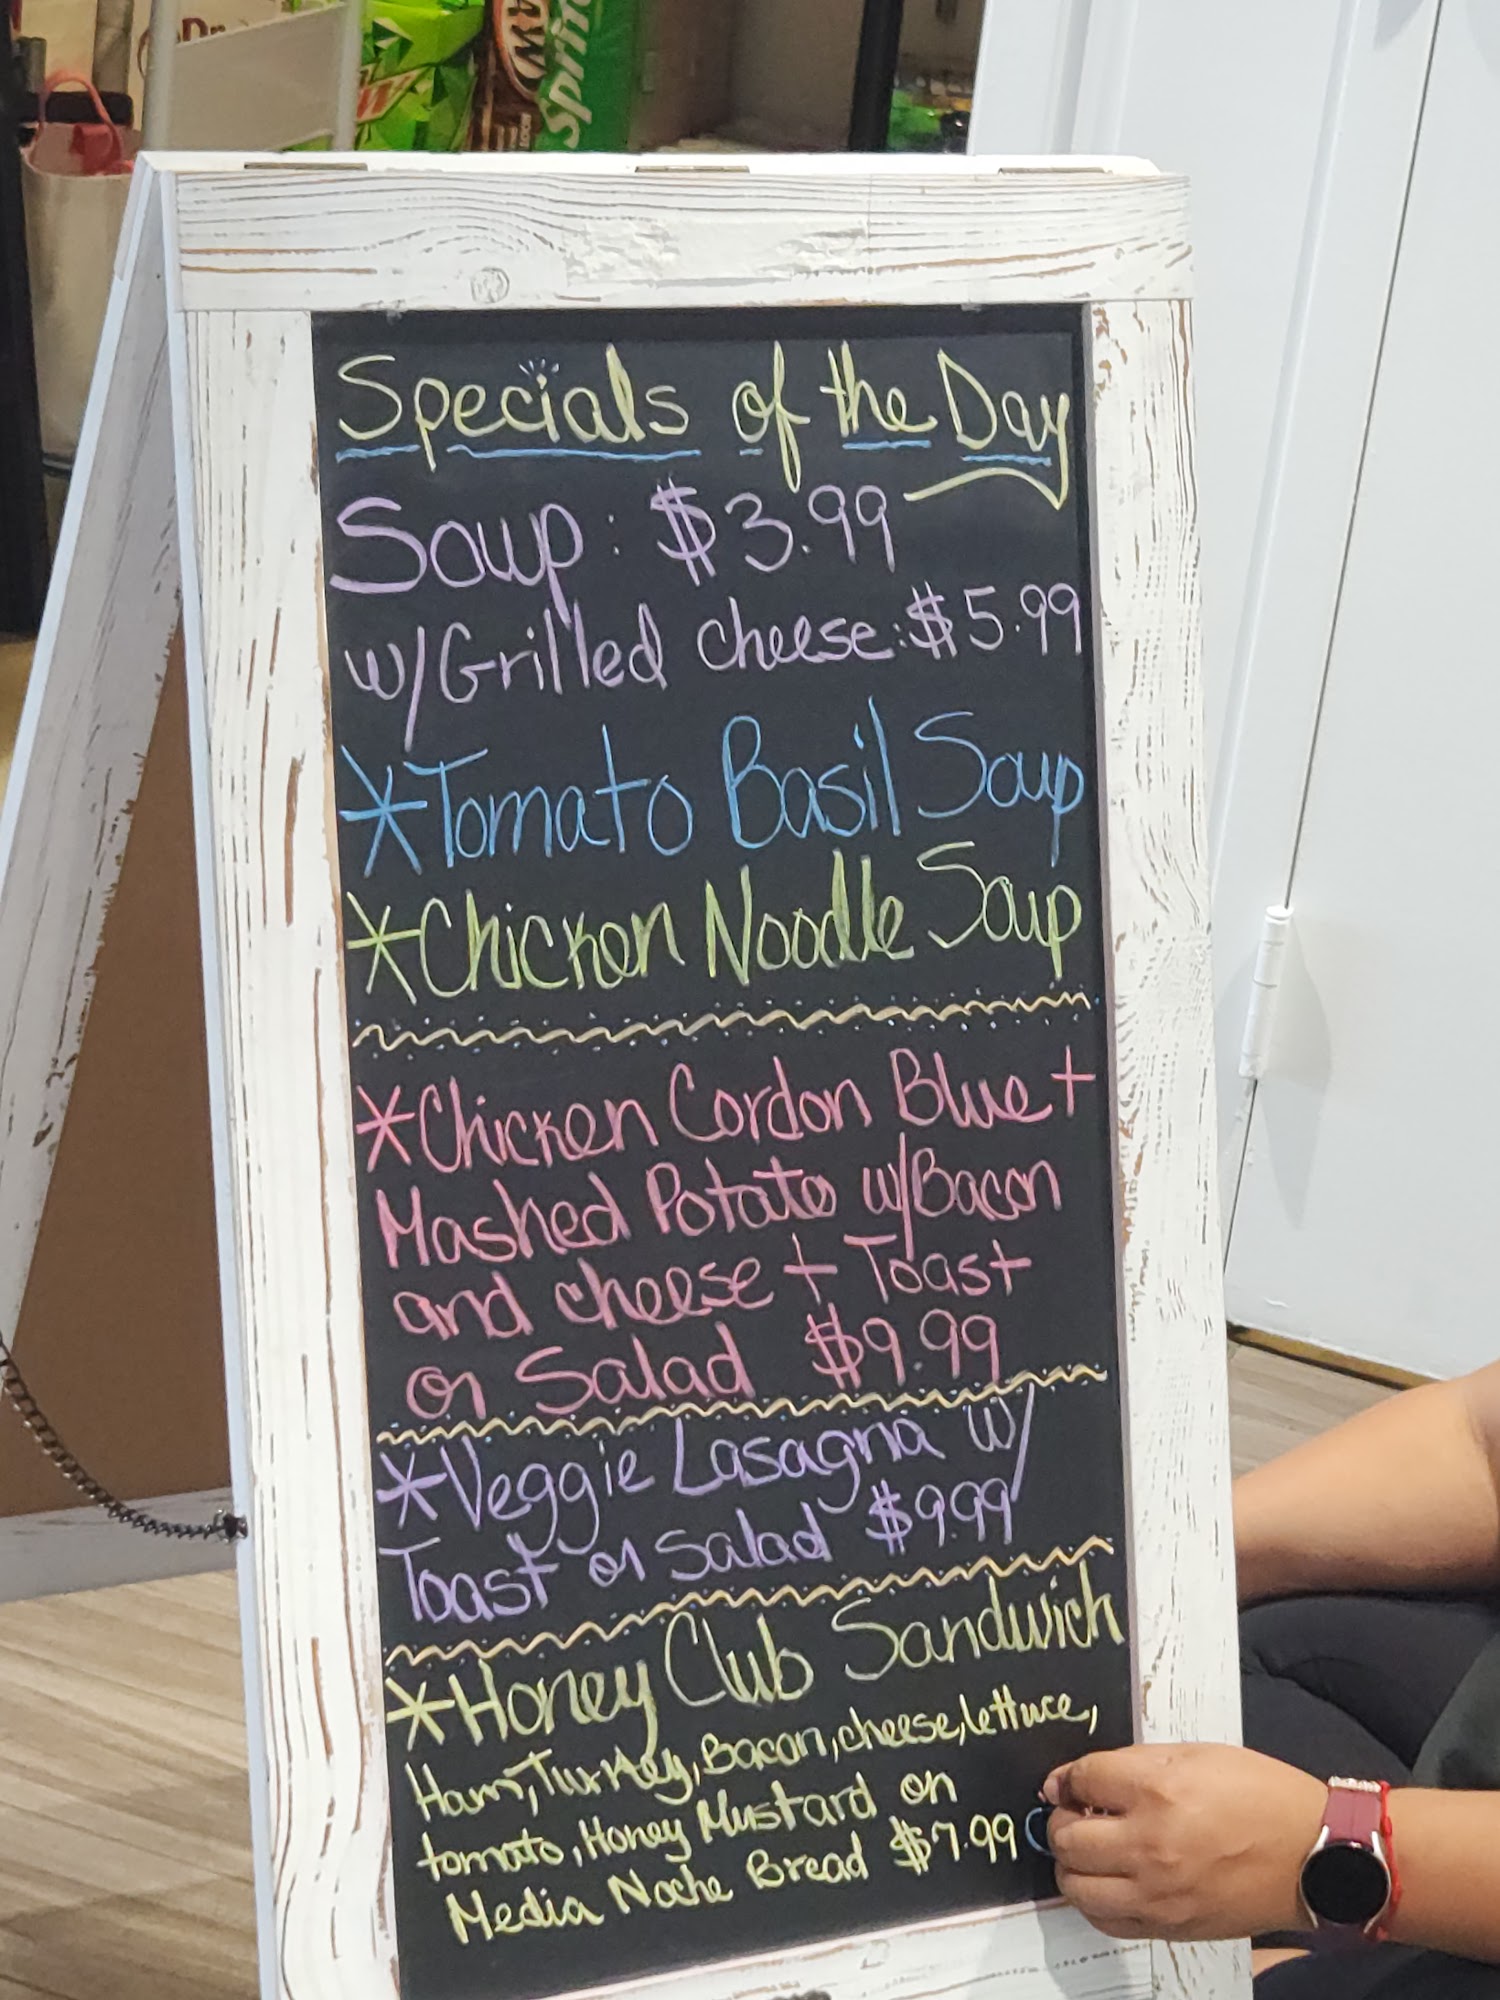 Dr
A&W
Sprite
Specials of the Day
Soup: $3.99
w/Grilled cheese: $5.99
*Tomato Basil Soup
*Chicken Noodle Soup
*Chicken Cordon Blue +
Mashed Potato w/Bacon
and cheese + Toast
or Salad $9.99
*Veggie Lasagna w/
Toast or Salad $9.99
*Honey Club Sandwich
Ham, Turkey, Bacon, cheese, lettuce,
tomato, Honey Mustard on
Media Noche Bread $7.99